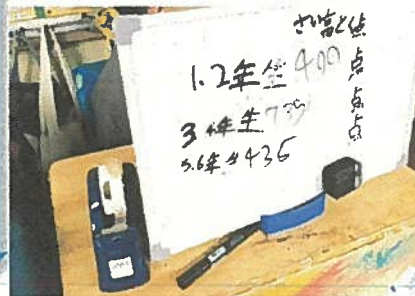 さい高とく点
1.2年生 400 点
3 4年生 点
5.6年生 436 点